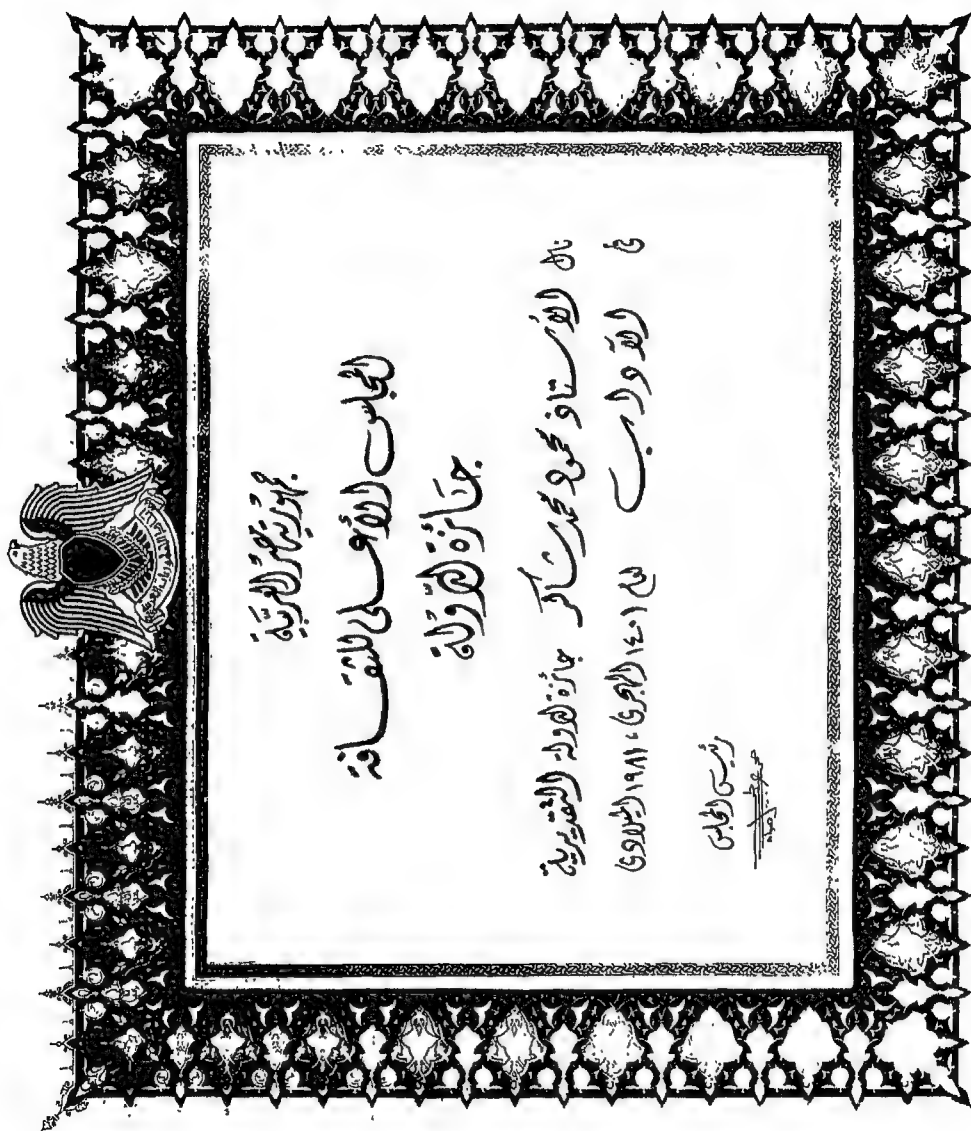 جمهورية مصر العربية
المجلس الأعلى للثقافة
جائزة الدولة
نال الأستاذ محمود محمد شاكر جائزة الدولة التقديرية
في الآداب لعام ١٤٠١ الهجرى، ١٩٨١ الميلادى
رئيس المجلس